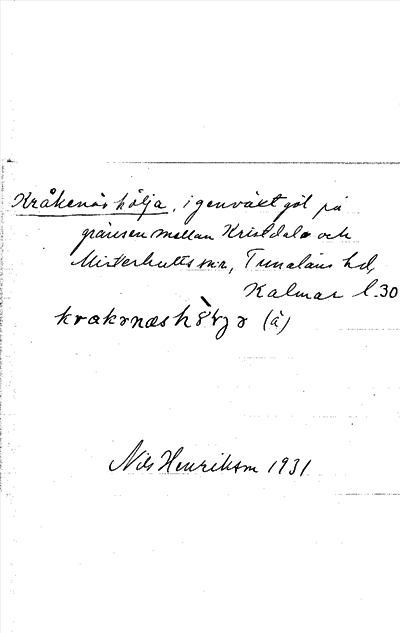 Kråkenäs hölja, igenväxt göl på
gränsen mellan Kristdala och
Misterhults snr, Tunaläns hd,
Kalmar l. 30
(å)
Nils Henrikson 1931